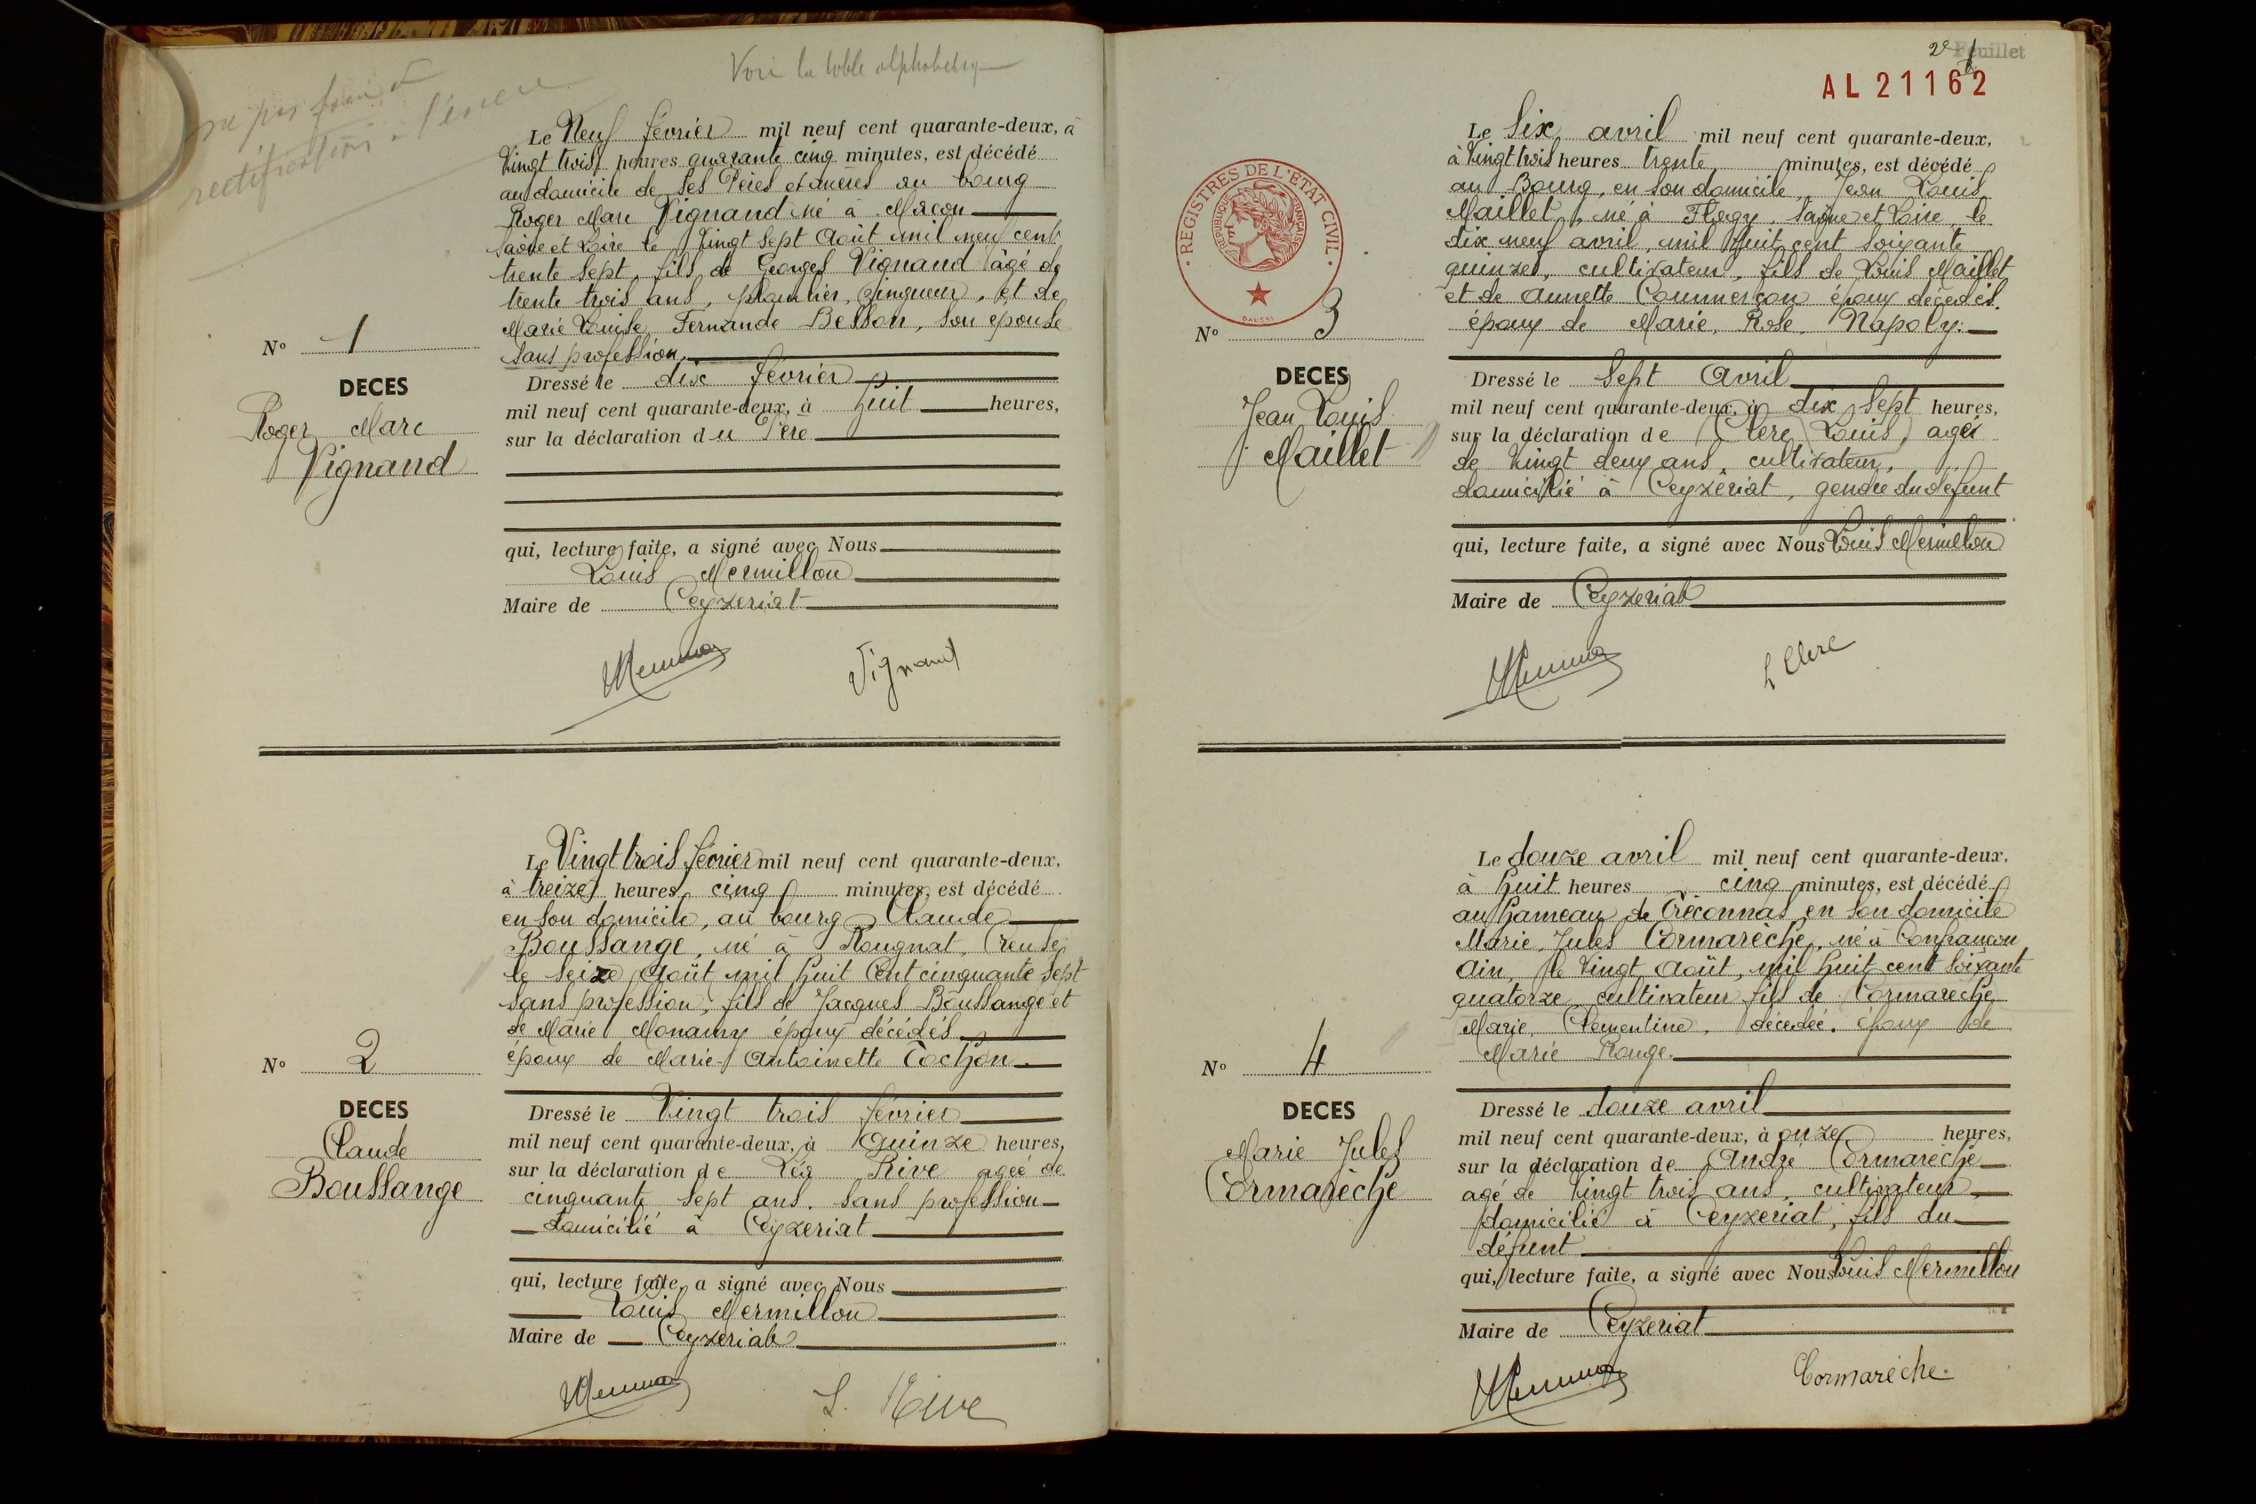 Voir la table alphabetiq
ne pas
rectification à l'encre
Le Neuf février mil neuf cent quarante-deux, à
Vingt trois heures quarante cinq minutes, est décédé
au domicile de ses Pères et mères au bourg
Roger Marc Vignand né à Mâcon
Saône et Loire le Vingt Sept Août mil neuf cent
trente sept, fils de Georges Vignand âgé de
trente trois ans, plombier, zingueur, et de
Marie Louise Fernande Besson, son épouse
sans profession
N° 1
DECES
Roger Marc
Vignand
Dressé le dix février
mil neuf cent quarante-deux, à huit heures,
sur la déclaration du Père
qui, lecture faite, a signé avec Nous
Louis Mermillon
Maire de Ceyzeriat
Vignand
Le Vingt trois février mil neuf cent quarante-deux,
à treize heures cinq minutes, est décédé
en son domicile, au bourg Claude
Boussange, né à Rougnat, Creuse
le seize Août mil huit Cent cinquante sept
sans profession, fils de Jacques Boussange et
de Marie Monamy époux décédés
époux de Marie Antoinette Tochon
N° 2
DECES
Claude
Boussange
Dressé le Vingt trois février
mil neuf cent quarante-deux, à Quinze heures,
sur la déclaration de Léa Rive agée de
cinquante sept ans. sans profession
domicilié à Ceyzeriat
qui, lecture faite, a signé avec Nous
Louis Mermillon
Maire de Ceyzeriat
L. Rive
2e Feuillet
AL 21162
REGISTRES DE L'ETAT CIVIL
REPUBLIQUE FRANÇAISE
Le Six avril mil neuf cent quarante-deux,
à Vingt trois heures trente minutes, est décédé
au Bourg, en son domicile, Jean Louis
Maillet, né à Flagy, Saône et Loire, le
dix neuf avril, mil huit cent soixante
quinze, cultivateur, fils de Louis Maillet
et de Annette Commerçon époux décédés.
époux de Marie, Rose, Napoly.
N° 3
DECES
Jean Louis
Maillet
Dressé le Sept Avril
mil neuf cent quarante-deux, à dix Sept heures,
sur la déclaration de Clerc Louis, agé
de Vingt deux ans, cultivateur,
domicilié à Ceyzériat, gendre du défunt
qui, lecture faite, a signé avec Nous Louis Mermillon
Maire de Ceyzeriat
L Clerc
Le douze avril mil neuf cent quarante-deux,
à huit heures cinq minutes, est décédé
au hameau de Tréconnas en son domicile
Marie, Jules Cormarèche, né à Confrançon
Ain, le Vingt Août, mil huit cent soixante
quatorze, cultivateur fils de Cormarèche
Marie, Clementine, décédée. époux de
Marie Rouge.
N° 4
DECES
Marie Jules
Cormarèche
Dressé le douze avril
mil neuf cent quarante-deux, à onze heures,
sur la déclaration de André Cormarèche
agé de Vingt trois ans, cultivateur,
domicilié à Ceyzeriat, fils du
défunt
qui, lecture faite, a signé avec Nous Louis Mermillon
Maire de Ceyzeriat
Cormarèche.